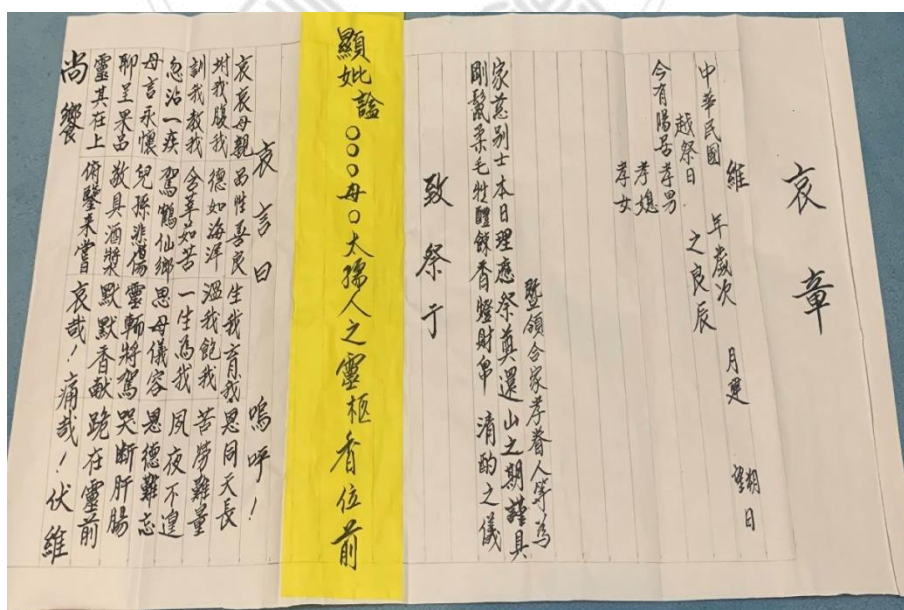 哀章
維
中華民國 年歲次 月建 朔望 日
越祭日 之良辰
今有陽居孝男
孝媳
孝女
暨領合家孝眷人等為
家慈別士本日理應祭奠還山之期謹具
剛鬣柔毛牲醴餘香燈財帛 清酌之儀
致祭于
顯妣諡○○○母○太孺人之靈柩香位前
哀言曰 嗚呼!
哀哀母親 品性善良 生我育我 恩同天長
拊我腹我 德如海洋 溫我飽我 苦勞難量
訓我教我 含莘茹苦 一生為我 夙夜不遑
忽沾一疾 駕鶴仙鄉 思母儀容 恩德難忘
母言永懷 兒孫悲傷 靈輀將駕 哭斷肝腸
聊呈果品 敬具酒漿 默默香献 跪在靈前
靈其在上 俯鑒来嘗 哀哉!痛哉!伏維
尚饗